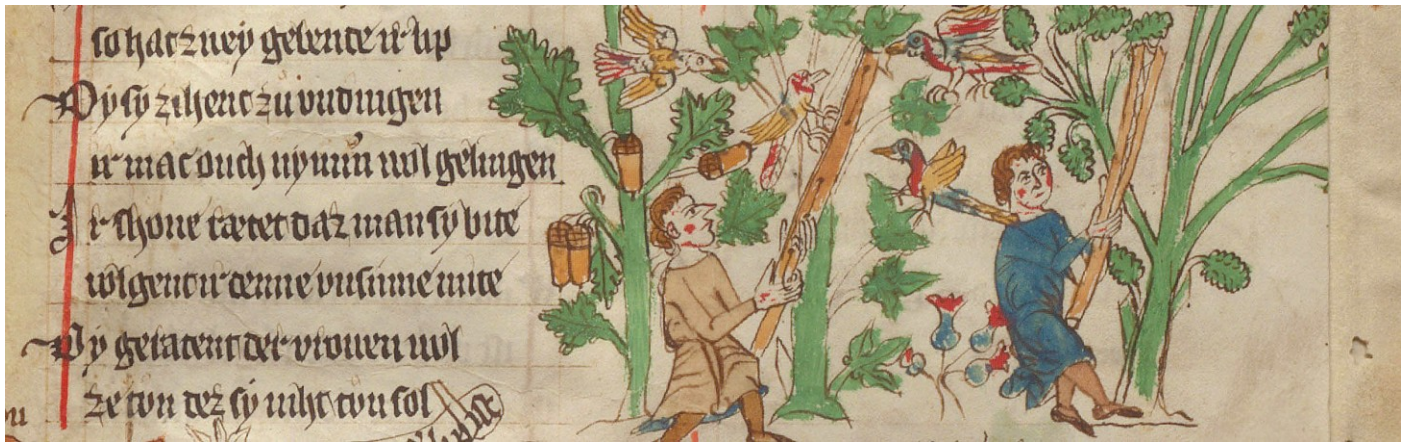 so hat zuey gelente ir lip
Dy sy zihent zu
ir mac ouch nymer wol gelingen
Ir shone ratet daz man sy bite
volgent ir denne unsinne mite
Dy geratent der vrouen wol
ze tun dez sy niht tun sol